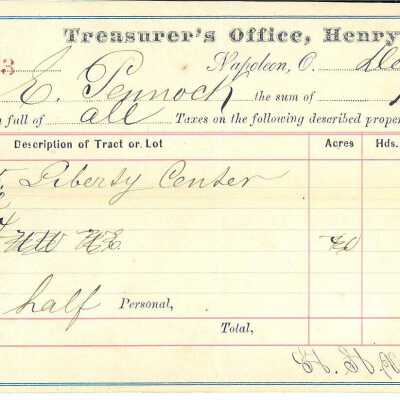 Treasurer's Office, Henry
3 Napoleon, O. Dec
E. Pennock the sum of
n full of all Taxes on the following described proper
Description of Tract or Lot Acres Hds.
Liberty Center
NW NE 40
half Personal,
Total,